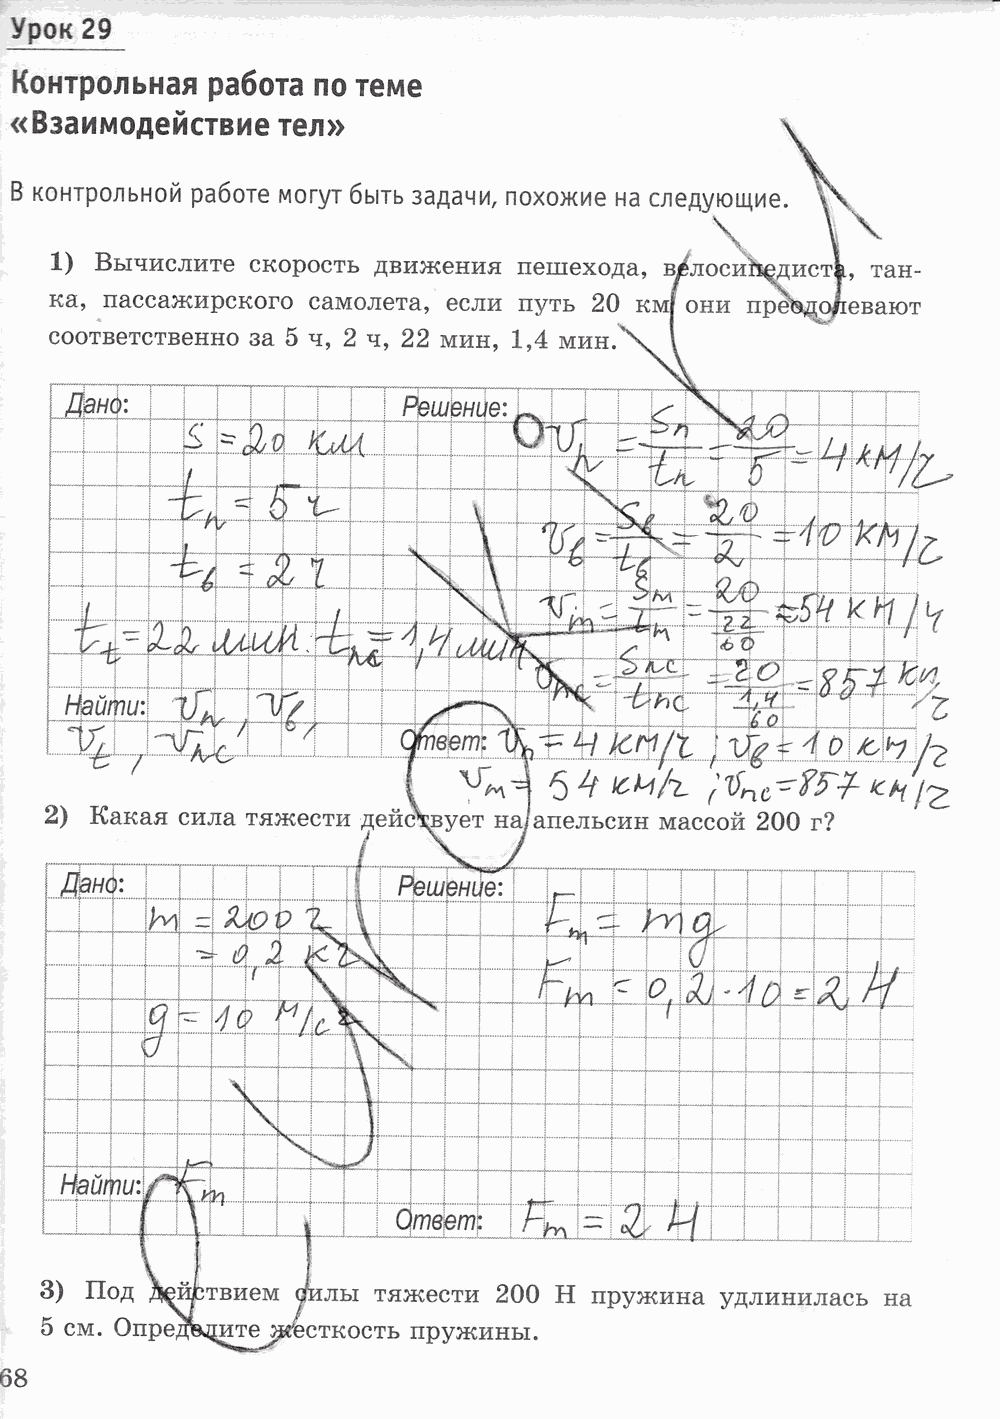 Урок 29
Контрольная работа по теме
«Взаимодействие тел»
В контрольной работе могут быть задачи, похожие на следующие.
1) Вычислите скорость движения пешехода, велосипедиста, тан-
ка, пассажирского самолета, если путь 20 км они преодолевают
соответственно за 5 ч, 2 ч, 22 мин, 1,4 мин.
Дано:
S = 20 км
tп = 5 ч
tв = 2 ч
tt = 22 мин. tпс = 1,4 мин
Найти: vп, vв,
vt, vпс
Решение:
vп = Sп/tп = 20/5 = 4 км/ч
vв = Sв/tв = 20/2 = 10 км/ч
vm = Sm/tm = 20/(22/60) = 54 км/ч
vпс = Sпс/tпс = 20/(1,4/60) = 857 км/ч
Ответ: vп = 4 км/ч; vв = 10 км/ч
vm = 54 км/ч; vпс = 857 км/ч
2) Какая сила тяжести действует на апельсин массой 200 г?
Дано:
m = 200 г
= 0,2 кг
g = 10 м/с²
Найти: Fm
Решение:
Fm = mg
Fm = 0,2 · 10 = 2 Н
Ответ: Fm = 2 Н
3) Под действием силы тяжести 200 Н пружина удлинилась на
5 см. Определите жесткость пружины.
68